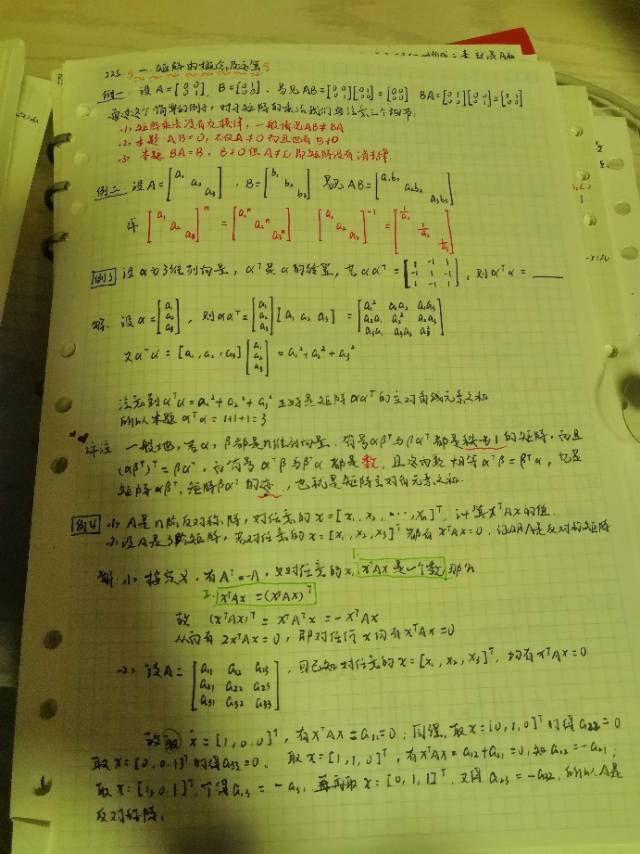 一 矩阵的概念及运算
例一: 设 A = , B = , 易见 AB =
BA =
(1) 矩阵乘法没有交换律, 一般情况 AB ≠ BA
(2) 本题 AB = 0, 不仅 A ≠ 0 而且也有 B ≠ 0
(3) 本题 BA = B, B ≠ 0 但 A ≠ E 即矩阵没有消去律
例二 设 A = [a₁ a₂ a₃], B = [b₁ b₂ b₃] 易见 AB = [a₁b₁ a₂b₂ a₃b₃]
[a₁ a₂ a₃]ⁿ = [a₁ⁿ a₂ⁿ a₃ⁿ] [a₁ a₂ a₃]⁻¹ = [1/a₁ 1/a₂ 1/a₃]
例3 设 α 为3维列向量, αᵀ 是 α 的转置, 若 ααᵀ = [1 -1 1; -1 1 -1; 1 -1 1], 则 αᵀα = ____
解: 设 α = [a₁; a₂; a₃], 则 ααᵀ = [a₁; a₂; a₃] [a₁ a₂ a₃] = [a₁² a₁a₂ a₁a₃; a₂a₁ a₂² a₂a₃; a₃a₁ a₃a₂ a₃²]
又 αᵀα = [a₁, a₂, a₃] [a₁; a₂; a₃] = a₁² + a₂² + a₃²
注意到 αᵀα = a₁² + a₂² + a₃² 正好是矩阵 ααᵀ 的主对角线元素之和
所以本题 αᵀα = 1+1+1 = 3
评注 一般地, 若 α, β 都是n维列向量. 符号 αβᵀ 与 βαᵀ 都是秩为1的矩阵. 而且
(αβᵀ)ᵀ = βαᵀ, 而符号 αᵀβ 与 βᵀα 都是数, 且这两数相等 αᵀβ = βᵀα, 它是
矩阵 αβᵀ, 矩阵 βαᵀ 的迹, 也就是矩阵主对角元素之和.
例4 (1) A是n阶反对称阵, 对任意的 x = [x₁, x₂, ..., xₙ]ᵀ, 计算 xᵀAx 的值
(2) 设A是3阶矩阵, 若对任意的 x = [x₁, x₂, x₃]ᵀ 都有 xᵀAx = 0, 证明A是反对称矩阵
解 (1) 按定义, 有 Aᵀ = -A, 又对任意的 x, xᵀAx 是一个数 那么
2. xᵀAx = (xᵀAx)ᵀ
故 (xᵀAx)ᵀ = xᵀAᵀx = -xᵀAx
从而有 2xᵀAx = 0, 即对任何 x 均有 xᵀAx = 0
(2) 设 A = [a₁₁ a₁₂ a₁₃; a₂₁ a₂₂ a₂₃; a₃₁ a₃₂ a₃₃], 因已知对任意的 x = [x₁, x₂, x₃]ᵀ, 均有 xᵀAx = 0
故取 x = [1, 0, 0]ᵀ, 有 xᵀAx = a₁₁ = 0. 同理, 取 x = [0, 1, 0]ᵀ 可得 a₂₂ = 0
取 x = [0, 0, 1]ᵀ 可得 a₃₃ = 0. 取 x = [1, 1, 0]ᵀ, 有 xᵀAx = a₁₂ + a₂₁ = 0, 知 a₁₂ = -a₂₁
取 x = [1, 0, 1]ᵀ, 可得 a₁₃ = -a₃₁ 再取 x = [0, 1, 1]ᵀ, 又得 a₂₃ = -a₃₂, 所以A是
反对称阵.